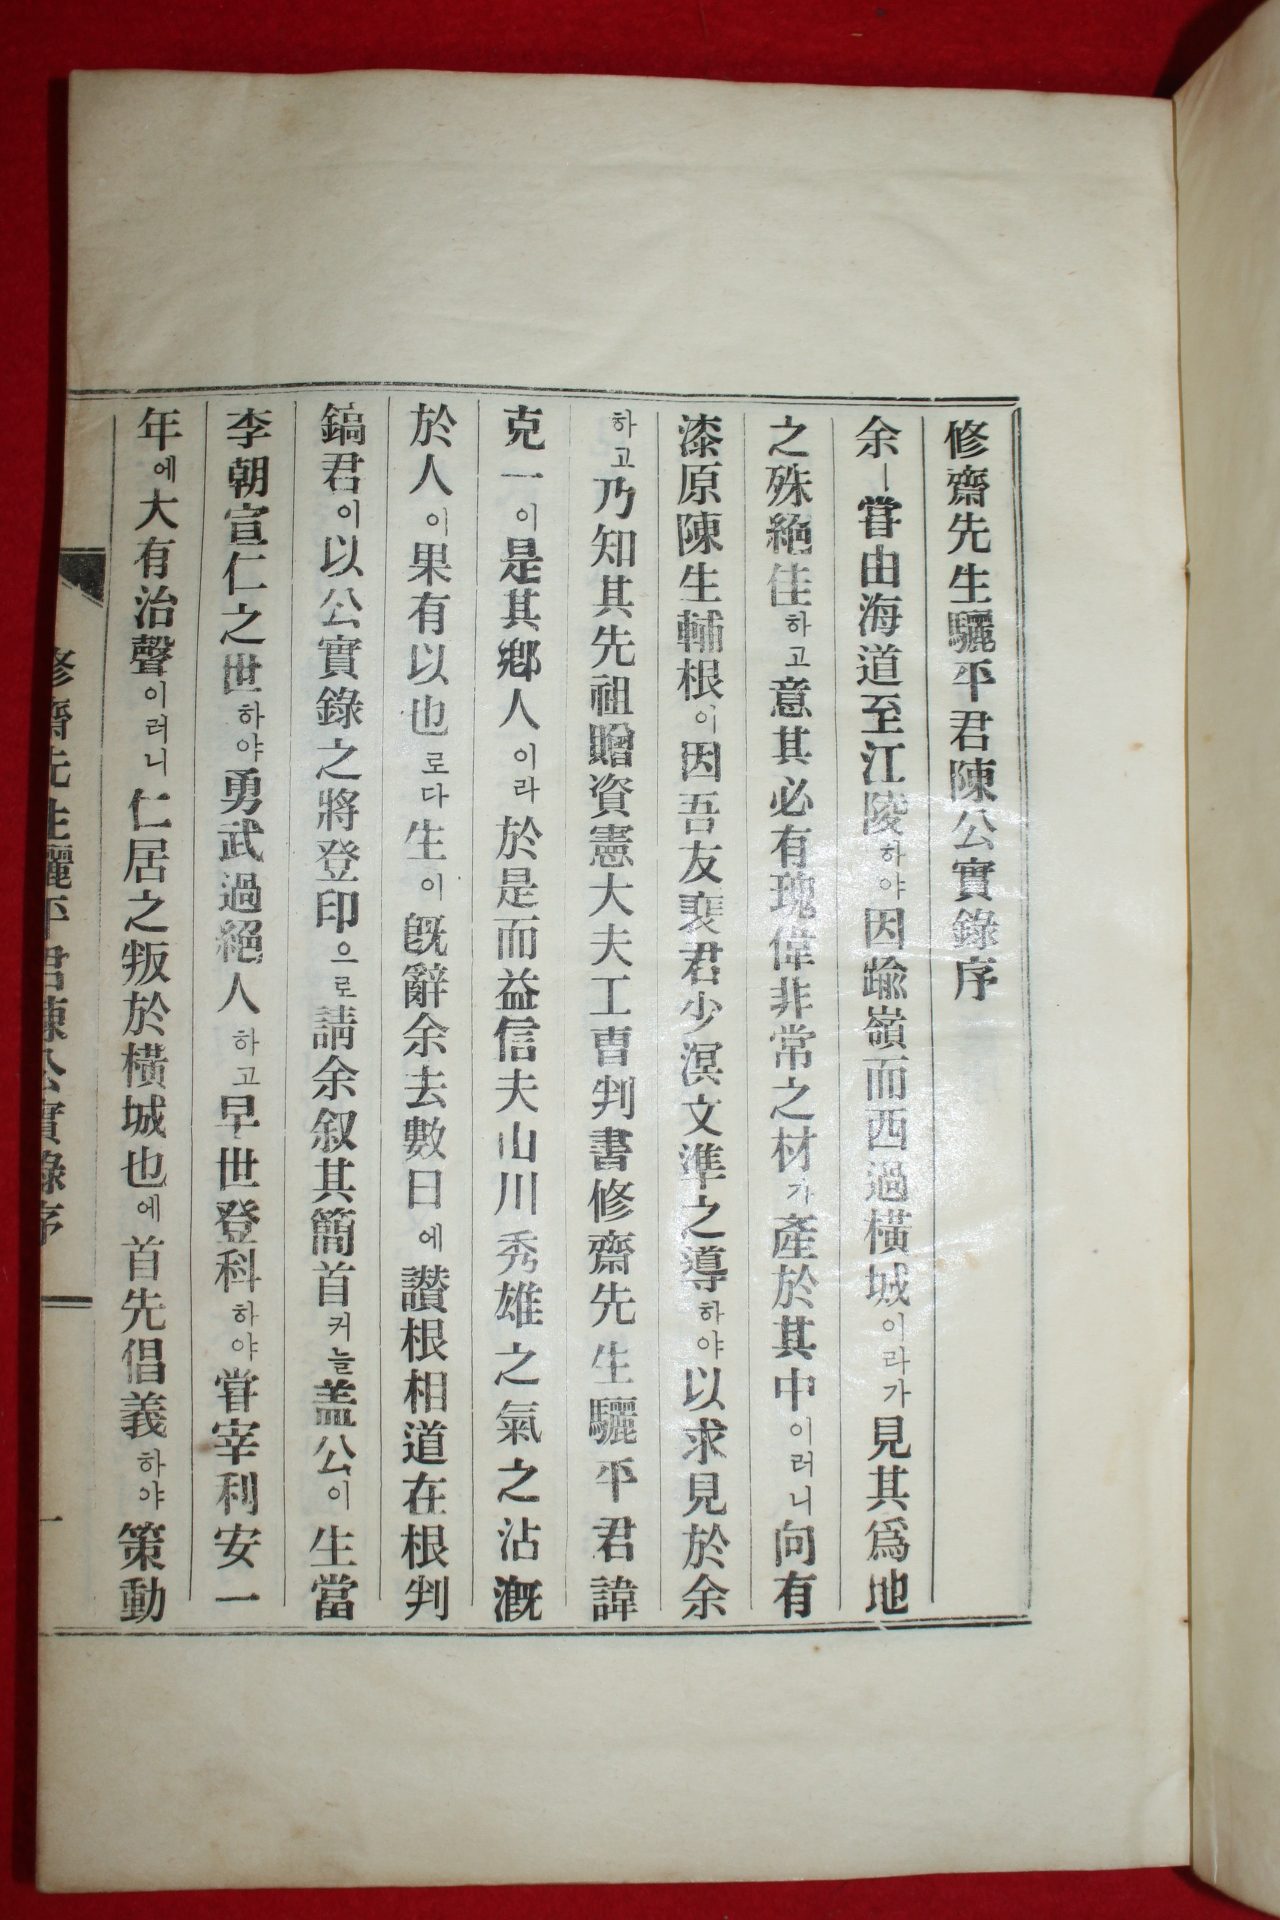 修齋先生驪平君陳公實錄序
余ㅣ嘗由海道至江陵하야因踰嶺而西過橫城이라가見其爲地
之殊絶佳하고意其必有瑰偉非常之材가產於其中이러니向有
漆原陳生輔根이因吾友裴君少溟文準之導하야以求見於余
하고乃知其先祖贈資憲大夫工曹判書修齋先生驪平君諱
克一이是其鄕人이라於是而益信夫山川秀雄之氣之沾漑
於人이果有以也로다生이旣辭余去數日에讃根相道在根判
鎬君이以公實錄之將登印으로請余叙其簡首커늘盖公이生當
李朝宣仁之世하야勇武過絕人하고早世登科하야嘗宰利安一
年에大有治聲이러니仁居之叛於橫城也에首先倡義하야策動
修齋先生驪平君陳公實錄序 一